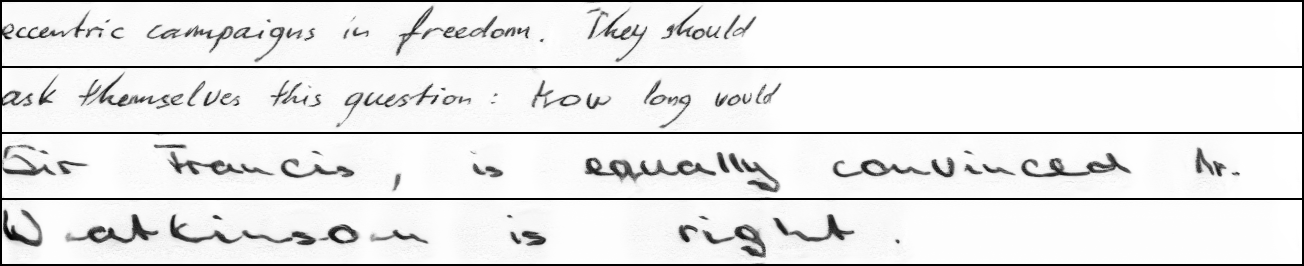 eccentric campaigns in freedom. They should
ask themselves this question: How long would
Sir Francis, is equally convinced Dr.
Watkinson is right.